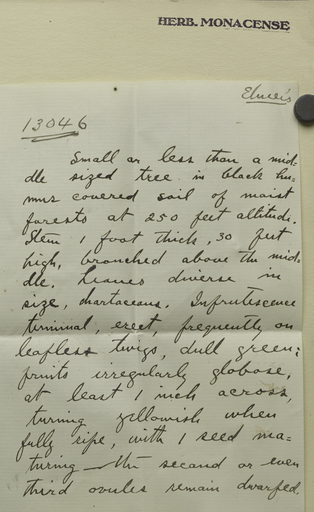 HERB. MONACENSE
Elmer's
13046
Small or less than a mid-
dle sized tree in black hu-
mus covered soil of moist
forests at 250 feet altitude.
Stem 1 foot thick, 30 feet
high, branched above the mid-
dle. Leaves diverse in
size, chartaceous. Infrutescence
terminal, erect, frequently on
leafless twigs, dull green;
fruits irregularly globose,
at least 1 inch across,
turning yellowish when
fully ripe, with 1 seed ma-
turing — the second or even
third ovules remain dwarfed.